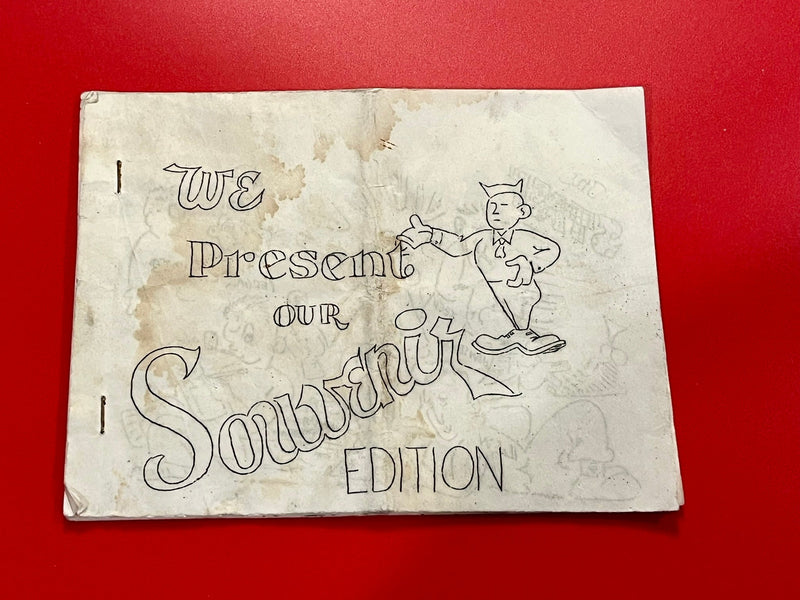 WE
Present
OUR
Souvenir
EDITION